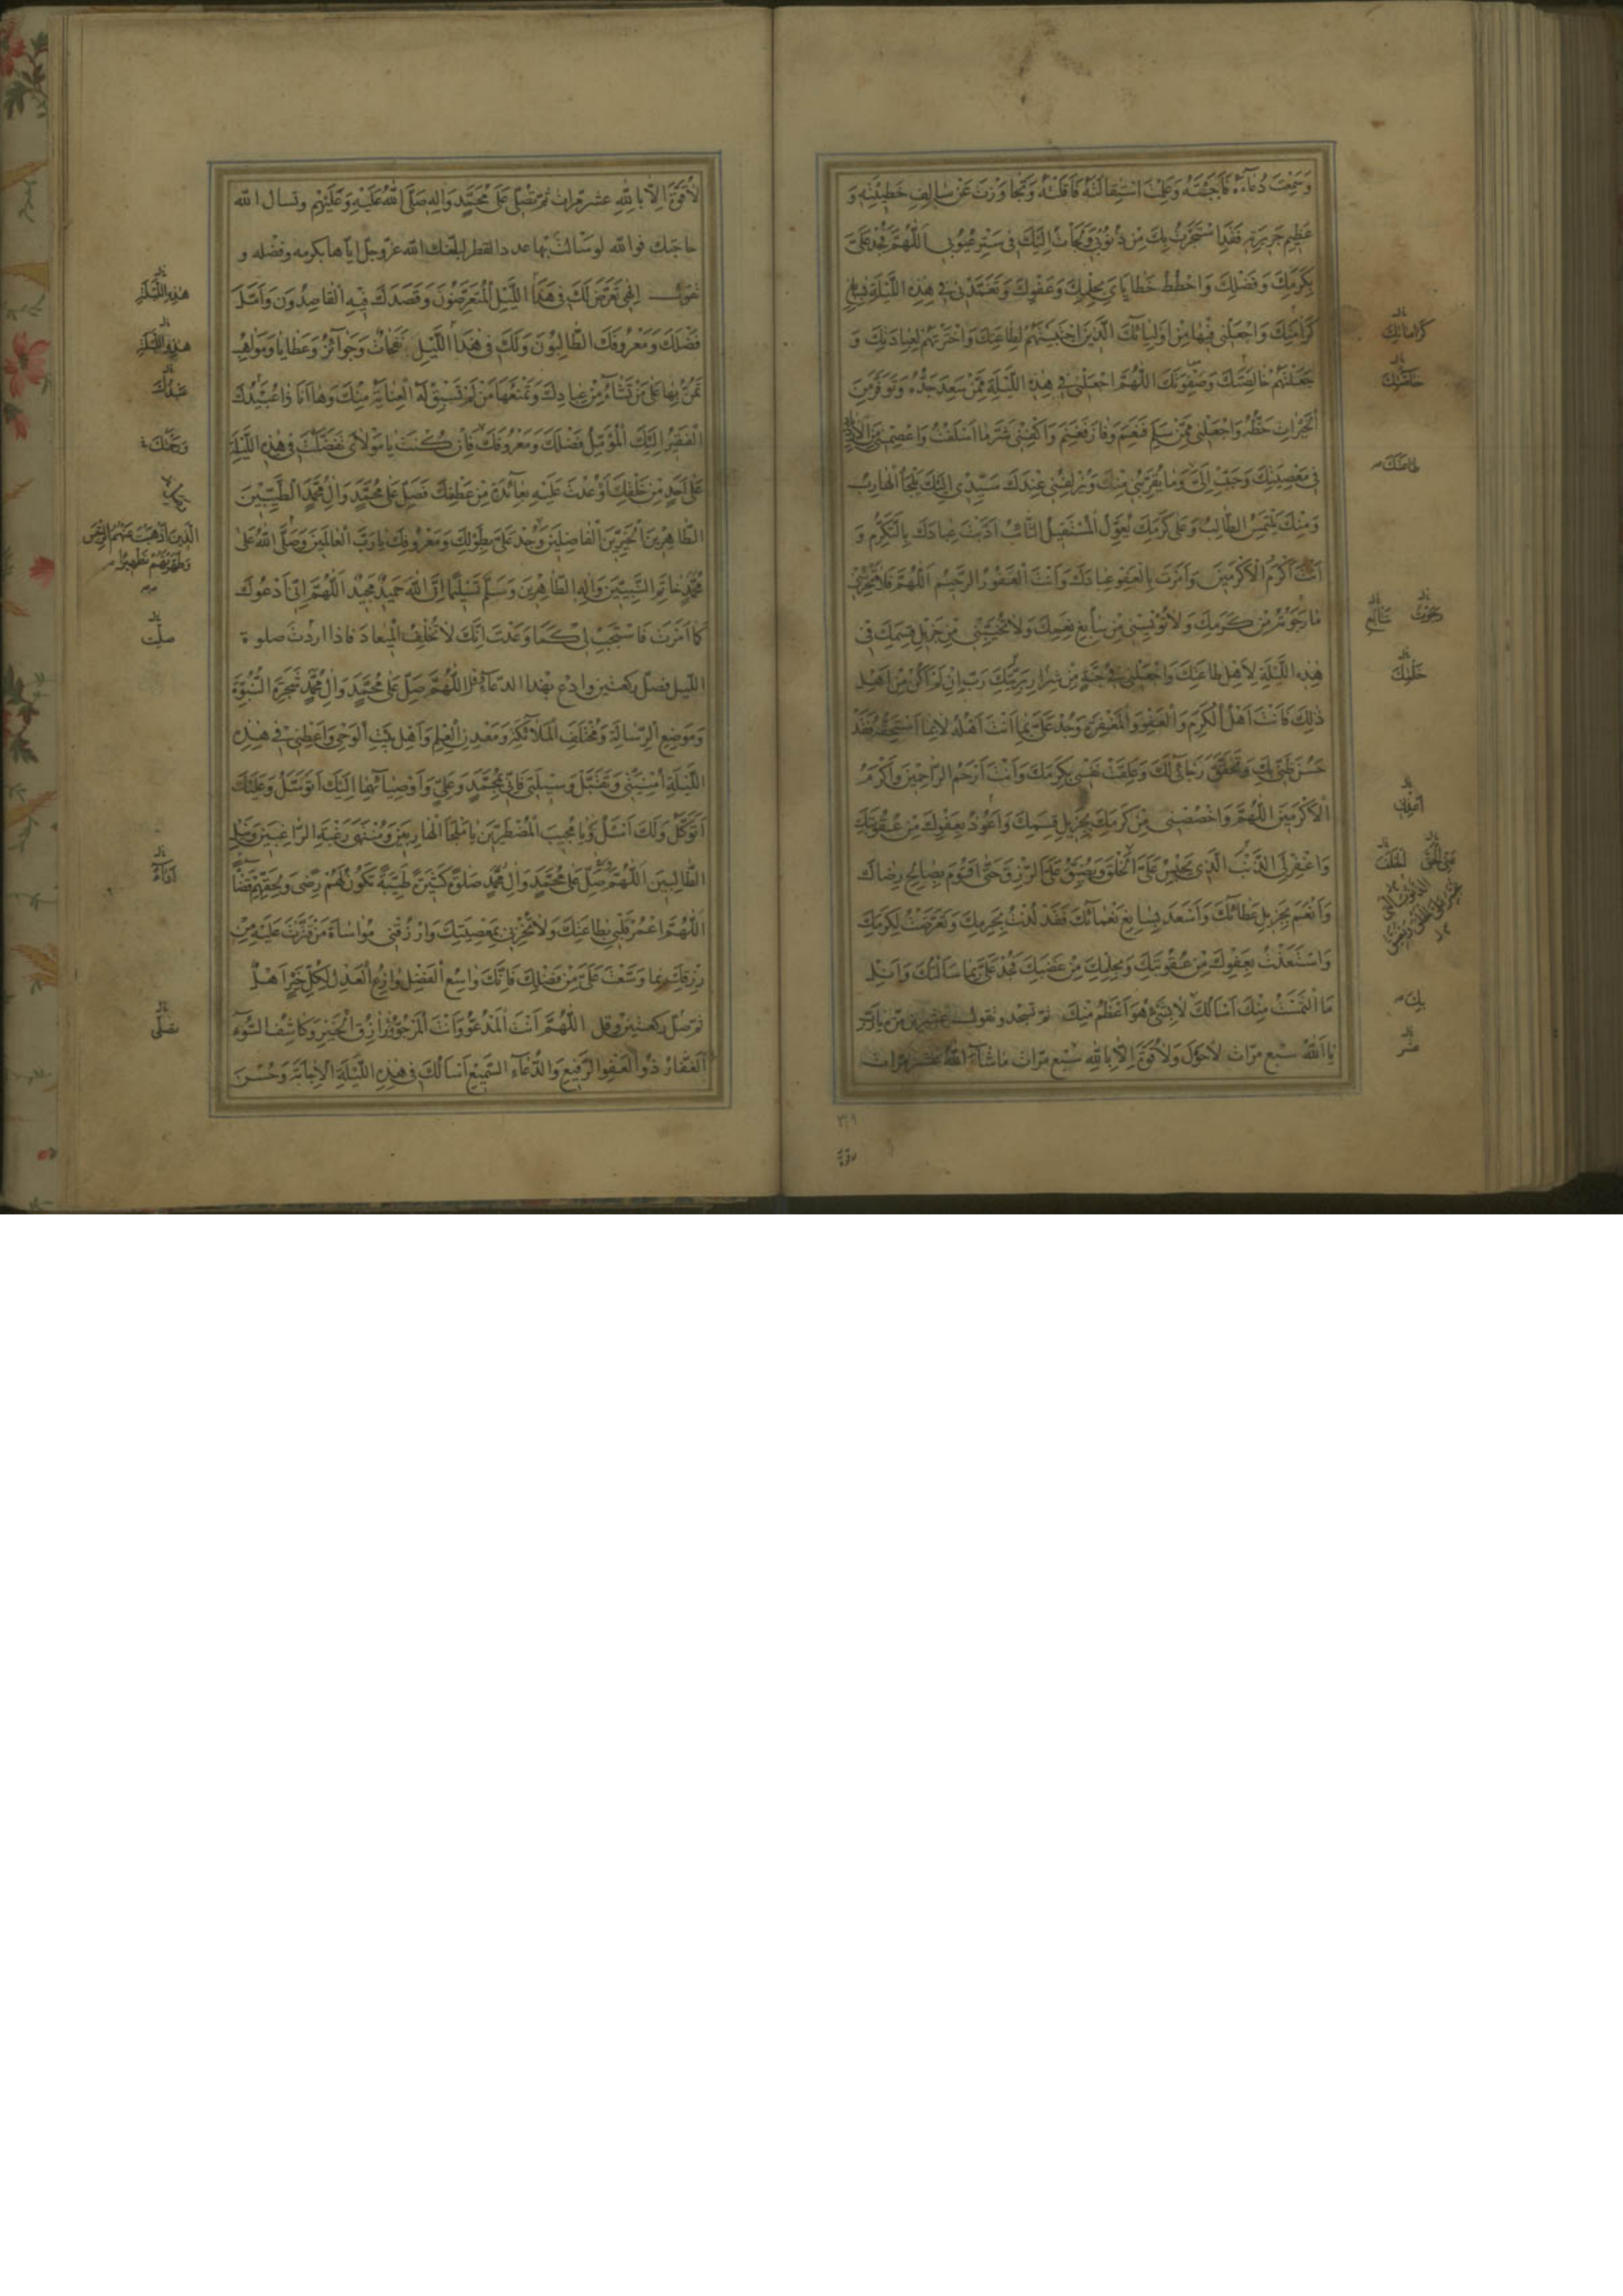 وَسَمِعْتَ دُعَاءَهُ فَاَجَبْتَهُ وَعَلِمْتَ اسْتِقالَتَهُ فَاَقَلْتَهُ وَتَجاوَزْتَ عَنْ سٰالِفِ خَطيئَتِهِ وَ
عَظيمِ جَريرَتِهِ فَقَدِ اسْتَجَرْتُ بِكَ مِنْ ذُنُوبي وَلَجَأْتُ اِلَيْكَ في سَتْرِ عُيُوبي اَللّٰهُمَّ فَجُدْ عَلَيَّ
بِكَرَمِكَ وَفَضْلِكَ وَاحْطُطْ خَطٰايٰايَ بِحِلْمِكَ وَعَفْوِكَ وَتَغَمَّدْني في هٰذِهِ اللَّيْلَةِ بِسٰابِغِ
كَرٰامَتِكَ وَاجْعَلْني فيهٰا مِنْ اَوْلِيٰائِكَ الَّذينَ اجْتَبَيْتَهُمْ لِطٰاعَتِكَ وَاخْتَرْتَهُمْ لِعِبٰادَتِكَ وَ
جَعَلْتَهُمْ خٰالِصَتَكَ وَصَفْوَتَكَ اَللّٰهُمَّ اجْعَلْني في هٰذِهِ اللَّيْلَةِ مِمَّنْ سَعِدَ جَدُّهُ وَتَوَفَّرَ مِنَ
الْخَيْرٰاتِ حَظُّهُ وَاجْعَلْني مِمَّنْ سَلِمَ فَنَعِمَ وَفٰازَ فَغَنِمَ وَاكْفِني شَرَّ مٰا اَسْلَفْتُ وَاعْصِمْني مِنَ الْاِزْدِيٰادِ
في مَعْصِيَتِكَ وَحَبِّبْ اِلَيَّ وَمٰا يُقَرِّبُني مِنْكَ وَيُزْلِفُني عِنْدَكَ سَيِّدي اِلَيْكَ يَلْجَأُ الْهٰارِبُ
وَمِنْكَ يَلْتَمِسُ الطّٰالِبُ وَعَلٰى كَرَمِكَ يُعَوِّلُ الْمُسْتَقيلُ التّٰائِبُ اَدَّبْتَ عِبٰادَكَ بِالتَّكَرُّمِ وَ
اَنْتَ اَكْرَمُ الْاَكْرَمينَ وَاَمَرْتَ بِالْعَفْوِ عِبٰادَكَ وَاَنْتَ الْغَفُورُ الرَّحيمُ اَللّٰهُمَّ فَلٰا تَحْرِمْني
مٰا رَجَوْتُ مِنْ كَرَمِكَ وَلٰا تُؤْيِسْني مِنْ سٰابِغِ نِعَمِكَ وَلٰا تُخَيِّبْني مِنْ جَزيلِ قِسَمِكَ في
هٰذِهِ اللَّيْلَةِ لِاَهْلِ طٰاعَتِكَ وَاجْعَلْني في جُنَّةٍ مِنْ شِرٰارِ بَرِيَّتِكَ رَبِّ اِنْ لَمْ اَكُنْ مِنْ اَهْلِ
ذٰلِكَ فَاَنْتَ اَهْلُ الْكَرَمِ وَالْعَفْوِ وَالْمَغْفِرَةِ وَجُدْ عَلَيَّ بِمٰا اَنْتَ اَهْلُهُ لٰا بِمٰا اَسْتَحِقُّهُ فَقَدْ
حَسُنَ ظَنّي بِكَ وَتَحَقَّقَ رَجٰائي لَكَ وَعَلِقَتْ نَفْسي بِكَرَمِكَ وَاَنْتَ اَرْحَمُ الرّٰاحِمينَ وَاَكْرَمُ
الْاَكْرَمينَ اَللّٰهُمَّ وَاخْصُصْني مِنْ كَرَمِكَ بِجَزيلِ قِسَمِكَ وَاَعُوذُ بِعَفْوِكَ مِنْ عُقُوبَتِكَ
وَاغْفِرْ لِيَ الذَّنْبَ الَّذي يَحْبِسُ عَلَيَّ الْخُلُقَ وَيُضَيِّقُ عَلَيَّ الرِّزْقَ حَتّٰى اَقُومَ بِصٰالِحِ رِضٰاكَ
وَاَنْعَمَ بِجَزيلِ عَطٰائِكَ وَاَسْعَدَ بِسٰابِغِ نَعْمٰائِكَ فَقَدْ لُذْتُ بِحَرَمِكَ وَتَعَرَّضْتُ لِكَرَمِكَ
وَاسْتَعَذْتُ بِعَفْوِكَ مِنْ عُقُوبَتِكَ وَبِحِلْمِكَ مِنْ غَضَبِكَ فَجُدْ عَلَيَّ بِمٰا سَاَلْتُكَ وَاَنِلْ
مَا الْتَمَسْتُ مِنْكَ اَسْاَلُكَ لٰا بِشَيْءٍ هُوَ اَعْظَمُ مِنْكَ ثمّ تسجد وتقول عشرين مرّة يا ربّ
يٰا اَللّٰهُ سبع مرّات لٰا حَوْلَ وَلٰا قُوَّةَ اِلّٰا بِاللّٰهِ سبع مرّات مٰا شٰاءَ اللّٰهُ عشر مرّات
كَرٰامٰاتِكَ
خٰاصَّتَكَ
طٰاعَتَكَ
رَجَوْتُ
اَعُوذُ
بِكَ
عشر
٣٠٩
لٰا قُوَّةَ
لٰا قُوَّةَ اِلّٰا بِاللّٰهِ عشر مرّات ثمّ تصلّي عَلٰى مُحَمَّدٍ وَاٰلِهِ صَلَّى اللّٰهُ عَلَيْهِ وَعَلَيْهِمْ وتسال الله
حاجتك فوالله لو سألت بها عدد القطر لبلّغك الله عزّ وجلّ ايّاها بكرمه وفضله و
تقول اِلٰهي تَعَرَّضَ لَكَ في هٰذَا اللَّيْلِ الْمُتَعَرِّضُونَ وَقَصَدَكَ فيهِ الْقٰاصِدُونَ وَاَمَّلَ
فَضْلَكَ وَمَعْرُوفَكَ الطّٰالِبُونَ وَلَكَ في هٰذَا اللَّيْلِ نَفَحٰاتٌ وَجَوٰائِزُ وَعَطٰايٰا وَمَوٰاهِبُ
تَمُنُّ بِهٰا عَلٰى مَنْ تَشٰاءُ مِنْ عِبٰادِكَ وَتَمْنَعُهٰا مَنْ لَمْ تَسْبِقْ لَهُ الْعِنٰايَةُ مِنْكَ وَهٰا اَنَا ذٰا عُبَيْدُكَ
الْفَقيرُ اِلَيْكَ الْمُؤَمِّلُ فَضْلَكَ وَمَعْرُوفَكَ فَاِنْ كُنْتَ يٰا مَوْلٰايَ تَفَضَّلْتَ في هٰذِهِ اللَّيْلَةِ
عَلٰى اَحَدٍ مِنْ خَلْقِكَ اَوْ عُدْتَ عَلَيْهِ بِعٰائِدَةٍ مِنْ عَطْفِكَ فَصَلِّ عَلٰى مُحَمَّدٍ وَاٰلِ مُحَمَّدٍ الطَّيِّبينَ
الطّٰاهِرينَ الْخَيِّرينَ الْفٰاضِلينَ وَجُدْ عَلَيَّ بِطَوْلِكَ وَمَعْرُوفِكَ يٰا رَبَّ الْعٰالَمينَ وَصَلَّى اللّٰهُ عَلٰى
مُحَمَّدٍ خٰاتَمِ النَّبِيّينَ وَاٰلِهِ الطّٰاهِرينَ وَسَلَّمَ تَسْليمًا اِنَّ اللّٰهَ حَميدٌ مَجيدٌ اَللّٰهُمَّ اِنّي اَدْعُوكَ
كَمٰا اَمَرْتَ فَاسْتَجِبْ لي كَمٰا وَعَدْتَ اِنَّكَ لٰا تُخْلِفُ الْميعٰادَ فاذا اردت صلوة
الليل فصلّ ركعتين وادع بهذا الدعاء اَللّٰهُمَّ صَلِّ عَلٰى مُحَمَّدٍ وَاٰلِ مُحَمَّدٍ شَجَرَةِ النُّبُوَّةِ
وَمَوْضِعِ الرِّسٰالَةِ وَمُخْتَلَفِ الْمَلٰائِكَةِ وَمَعْدِنِ الْعِلْمِ وَاَهْلِ بَيْتِ الْوَحْيِ وَاَعْطِني في هٰذِهِ
اللَّيْلَةِ اُمْنِيَّتي وَتَقَبَّلْ وَسيلَتي فَاِنّي بِمُحَمَّدٍ وَعَلِيٍّ وَاَوْصِيٰائِهِمٰا اِلَيْكَ اَتَوَسَّلُ وَعَلَيْكَ
اَتَوَكَّلُ وَلَكَ اَسْئَلُ يٰا مُجيبَ الْمُضْطَرّينَ يٰا مَلْجَأَ الْهٰارِبينَ وَمُنْتَهٰى رَغْبَةِ الرّٰاغِبينَ وَنَيْلِ
الطّٰالِبينَ اَللّٰهُمَّ صَلِّ عَلٰى مُحَمَّدٍ وَاٰلِ مُحَمَّدٍ صَلٰوةً كَثيرَةً طَيِّبَةً تَكُونُ لَهُمْ رِضًى وَلِحَقِّهِمْ قَضٰاءً
اَللّٰهُمَّ اعْمُرْ قَلْبي بِطٰاعَتِكَ وَلٰا تُخْزِني بِمَعْصِيَتِكَ وَارْزُقْني مُوٰاسٰاةَ مَنْ قَتَّرْتَ عَلَيْهِ مِنْ
رِزْقِكَ بِمٰا وَسَّعْتَ عَلَيَّ مِنْ فَضْلِكَ فَاِنَّكَ وٰاسِعُ الْفَضْلِ وٰازِعُ الْعَدْلِ لِكُلِّ خَيْرٍ اَهْلٌ
ثمّ صلّ ركعتين وقل اَللّٰهُمَّ اَنْتَ الْمَدْعُوُّ وَاَنْتَ الْمَرْجُوُّ رٰازِقُ الْخَيْرِ وَكٰاشِفُ السُّوءِ
الْغَفّٰارُ ذُو الْعَفْوِ الرَّفيعِ وَالدُّعٰاءِ السَّميعِ اَسْاَلُكَ في هٰذِهِ اللَّيْلَةِ الْاِجٰابَةَ وَحُسْنَ
هٰذِهِ اللَّيْلَةِ
هٰذِهِ اللَّيْلَةِ
عَبْدُكَ
الَّذينَ اَذْهَبْتَ عَنْهُمُ الرِّجْسَ
وَطَهَّرْتَهُمْ تَطْهيرًا
صلّيت
اَدٰاءً
تصلّي